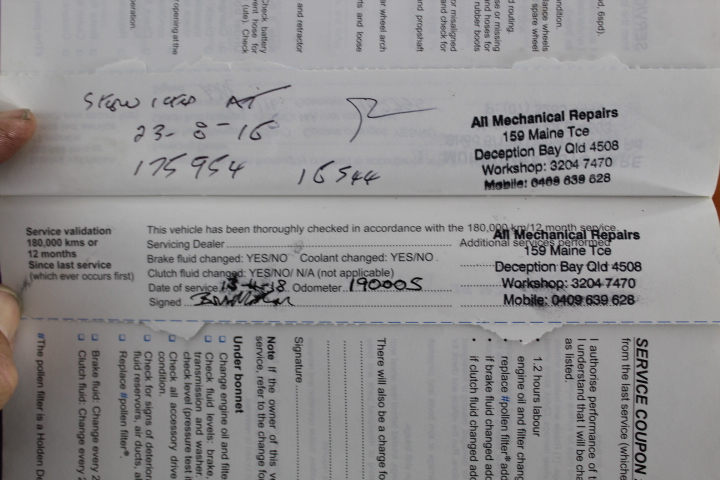 SERVICED AT
23-8-16
175954
16544
All Mechanical Repairs
159 Maine Tce
Deception Bay Qld 4508
Workshop: 3204 7470
Mobile: 0409 639 628
Service validation
180,000 kms or
12 months
Since last service
(which ever occurs first)
This vehicle has been thoroughly checked in accordance with the 180,000 km/12 month service
Servicing Dealer
Additional services performed
Brake fluid changed: YES/NO Coolant changed: YES/NO
Clutch fluid changed: YES/NO/ N/A (not applicable)
Date of service Odometer 190005
Signed
All Mechanical Repairs
159 Maine Tce
Deception Bay Qld 4508
Workshop: 3204 7470
Mobile: 0409 639 628
SERVICE COUPON
from the last service (whiche
I authorise performance of t
I understand that I will be cha
as listed.
• 1.2 hours labour
engine oil and filter chang
• replace #pollen filter* add
• if brake fluid changed add
• if clutch fluid changed add
There will also be a charge fo
Signature
Note If the owner of this v
service, refer to the change fo
Under bonnet
Change engine oil and filte
Check fluid levels: brake,
transmission and washer.
check level (pressure test i
Check all accessory drive
condition.
Check for signs of deterior
fluid reservoirs, air ducts, a
Replace #pollen filter*.
Brake fluid: Change every 2
Clutch fluid: Change every 2
#The pollen filter is a Holden De
d, 6spd).
ondition.
lance wheels
spare wheel
d routing.
se or missing
and hoses for
rubber boots
or misaligned
and check for
and propshaft
ar wheel arch
rts and loose
and retractor
Check battery
vent hose for
(ute). Check
opening at the
peration.